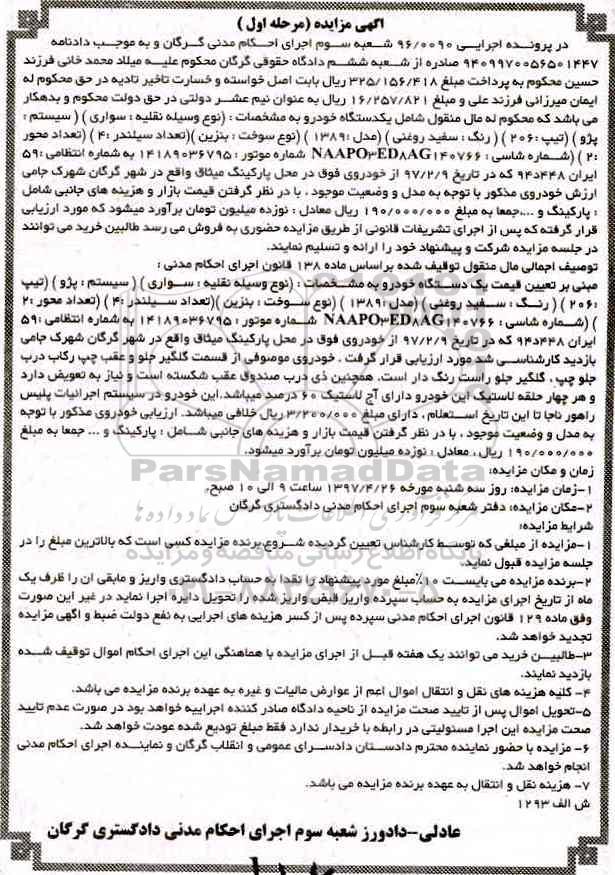 آگهی مزایده (مرحله اول )
در پرونده اجرایی ۹۶/۰۰۹۰ شعبه سوم اجرای احکام مدنی گرگان و به موجب دادنامه
۹۴۰۹۹۷۰۰۵۶۵۰۱۴۴۷ صادره از شعبه ششم دادگاه حقوقی گرگان محکوم علیه میلاد محمد خانی فرزند
حسین محکوم به پرداخت مبلغ ۳۲۵/۱۵۶/۴۱۸ ریال بابت اصل خواسته و خسارت تاخیر تادیه در حق محکوم له
ایمان میرزانی فرزند علی و مبلغ ۱۶/۲۵۷/۸۲۱ ریال به عنوان نیم عشر دولتی در حق دولت محکوم و بدهکار
می باشد که محکوم له مال منقول شامل یکدستگاه خودرو به مشخصات : (نوع وسیله نقلیه : سواری ) ( سیستم :
پژو ) (تیپ :۲۰۶ ) ( رنگ : سفید روغنی ) (مدل :۱۳۸۹ ) (نوع سوخت : بنزین )(تعداد سیلندر :۴ ) (تعداد محور
:۲ ) (شماره شاسی : NAAP۰۳ED۸AG۱۴۰۷۶۶ شماره موتور : ۱۴۱۸۹۰۳۶۷۹۵ به شماره انتظامی :۵۹
ایران ۹۴د۴۴۸ که در تاریخ ۹۷/۲/۹ از خودروی فوق در محل پارکینگ میثاق واقع در شهر گرگان شهرک جامی
ارزش خودروی مذکور با توجه به مدل و وضعیت موجود ، با در نظر گرفتن قیمت بازار و هزینه های جانبی شامل
: پارکینگ و ....جمعا به مبلغ ۱۹۰/۰۰۰/۰۰۰ ریال معادل : نوزده میلیون تومان برآورد میشود که مورد ارزیابی
قرار گرفته که پس از اجرای تشریفات قانونی از طریق مزایده حضوری به فروش می رسد طالبین خرید می توانند
در جلسه مزایده شرکت و پیشنهاد خود را ارائه و تسلیم نمایند.
توصیف اجمالی مال منقول توقیف شده براساس ماده ۱۳۸ قانون اجرای احکام مدنی :
مبنی بر تعیین قیمت یک دستگاه خودرو به مشخصات : (نوع وسیله نقلیه : سواری ) ( سیستم : پژو ) (تیپ
:۲۰۶ ) ( رنگ : سفید روغنی ) (مدل :۱۳۸۹ ) (نوع سوخت : بنزین )(تعداد سیلندر :۴ ) (تعداد محور :۲
) (شماره شاسی : NAAP۰۳ED۸AG۱۴۰۷۶۶ شماره موتور : ۱۴۱۸۹۰۳۶۷۹۵ به شماره انتظامی :۵۹
ایران ۹۴د۴۴۸ که در تاریخ ۹۷/۲/۹ از خودروی فوق در محل پارکینگ میثاق واقع در شهر گرگان شهرک جامی
بازدید کارشناسی شد مورد ارزیابی قرار گرفت . خودروی موصوفی از قسمت گلگیر جلو و عقب چپ رکاب درب
جلو چپ ، گلگیر جلو راست رنگ دار است. همچنین ذی درب صندوق عقب شکسته است و نیاز به تعویض دارد
و هر چهار حلقه لاستیک این خودرو دارای آج لاستیک ۶۰ درصد میباشد.این خودرو در سیستم اجرائیات پلیس
راهور ناجا تا این تاریخ استعلام ، دارای مبلغ ۳/۲۰۰/۰۰۰ ریال خلافی میباشد. ارزیابی خودروی مذکور با توجه
به مدل و وضعیت موجود ، با در نظر گرفتن قیمت بازار و هزینه های جانبی شامل : پارکینگ و ... جمعا به مبلغ
۱۹۰/۰۰۰/۰۰۰ ریال ، معادل : نوزده میلیون تومان برآورد میشود.
زمان و مکان مزایده:
۱-زمان مزایده: روز سه شنبه مورخه ۱۳۹۷/۴/۲۶ ساعت ۹ الی ۱۰ صبح.
۲-مکان مزایده: دفتر شعبه سوم اجرای احکام مدنی دادگستری گرگان
شرایط مزایده:
۱-مزایده از مبلغی که توسط کارشناس تعیین گردیده شروع.برنده مزایده کسی است که بالاترین مبلغ را در
جلسه مزایده قبول نماید.
۲-برنده مزایده می بایست ۱۰٪مبلغ مورد پیشنهاد را نقدا به حساب دادگستری واریز و مابقی ان را ظرف یک
ماه از تاریخ اجرای مزایده به حساب سپرده واریز قبض واریز شده را تحویل دایره اجرا نماید در غیر این صورت
وفق ماده ۱۲۹ قانون اجرای احکام مدنی سپرده پس از کسر هزینه های اجرایی به نفع دولت ضبط و آگهی مزایده
تجدید خواهد شد.
۳-طالبین خرید می توانند یک هفته قبل از اجرای مزایده با هماهنگی این اجرای احکام اموال توقیف شده
بازدید نمایند.
۴- کلیه هزینه های نقل و انتقال اموال اعم از عوارض مالیات و غیره به عهده برنده مزایده می باشد.
۵-تحویل اموال پس از تایید صحت مزایده از ناحیه دادگاه صادر کننده اجراییه خواهد بود در صورت عدم تایید
صحت مزایده این اجرا مسئولیتی در رابطه با خریدار ندارد فقط مبلغ تودیع شده عودت خواهد شد.
۶- مزایده با حضور نماینده محترم دادستان دادسرای عمومی و انقلاب گرگان و نماینده اجرای احکام مدنی
انجام خواهد شد.
۷- هزینه نقل و انتقال به عهده برنده مزایده می باشد.
ش الف ۱۲۹۳
عادلی-دادورز شعبه سوم اجرای احکام مدنی دادگستری گرگان
ParsNamadData
پایگاه اطلاع رسانی مناقصه و مزایده